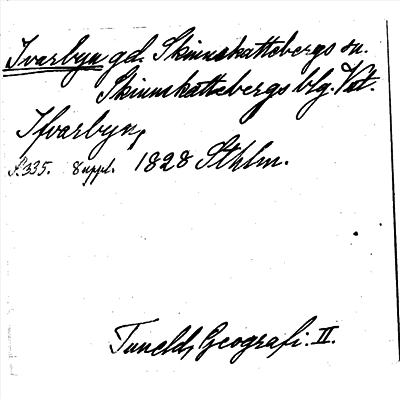 Ivarbyn gd. Skinnskattebergs sn.
Skinnskattebergs blg. Vstm.
Ifvarbyn,
S. 335. 8 uppl. 1828 Sthlm.
Tuneld, Geografi. II.